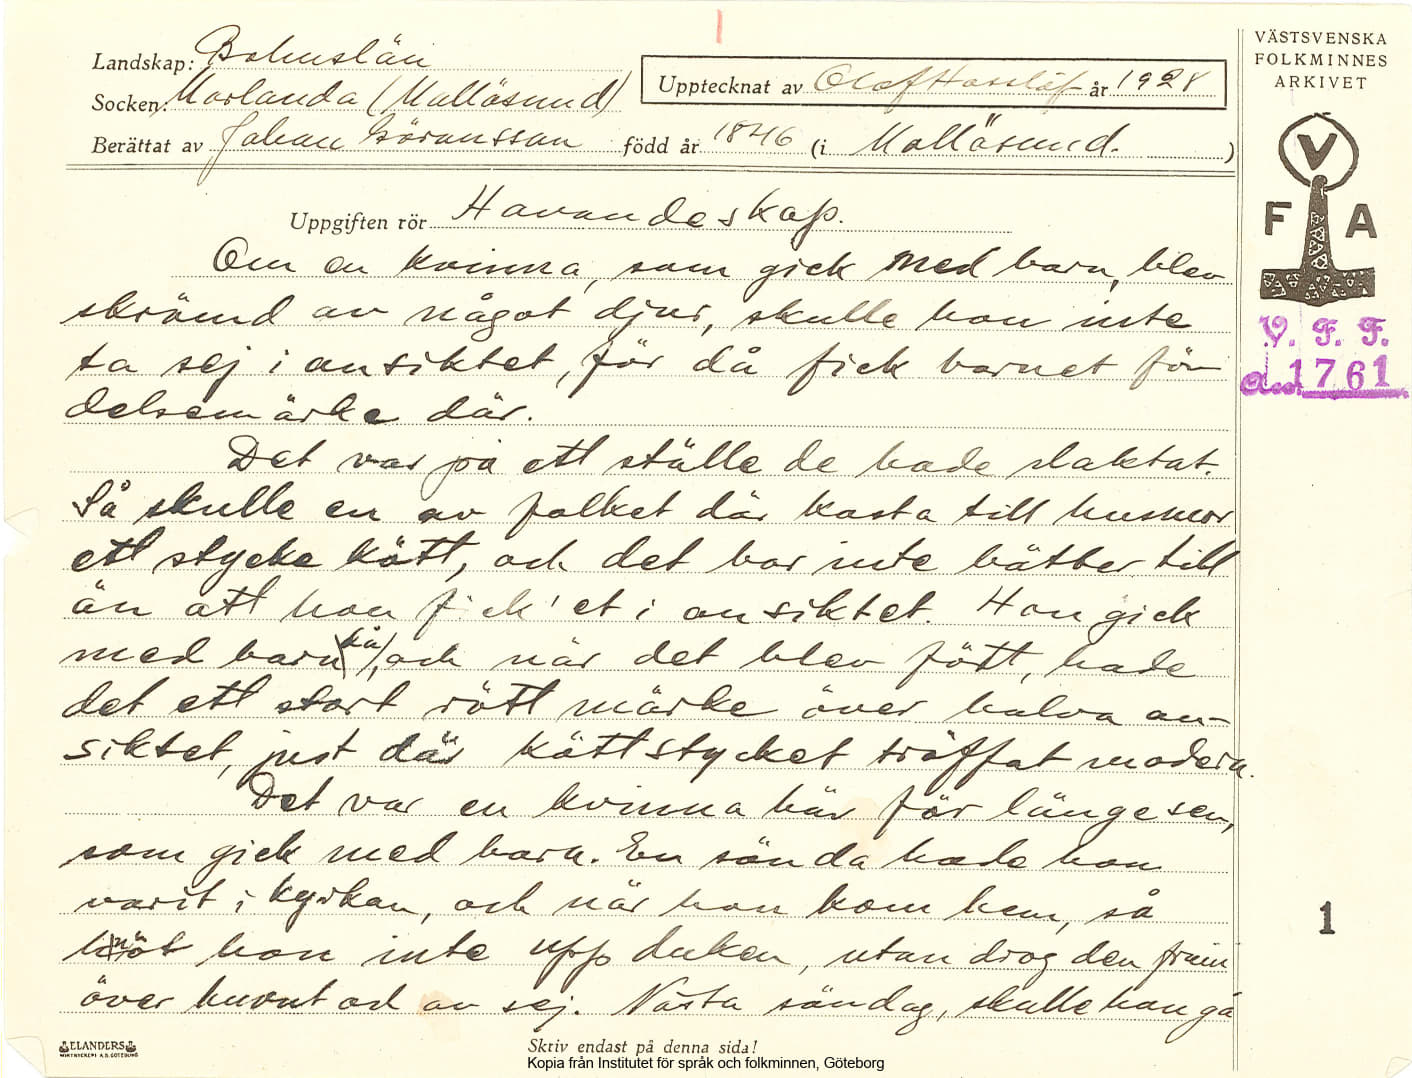 Landskap: Bohuslän
Socken: Morlanda (Mollösund)
Berättat av Johan Göransson född år 1846 (i Mollösund. )
Upptecknat av Olof Hasslöf år 1928
VÄSTSVENSKA
FOLKMINNES
ARKIVET
V
F A
V. F. F.
1761
Uppgiften rör Havandeskap.
Om en kvinna, som gick med barn, blev
skrämd av något djur, skulle hon inte
ta sej i ansiktet, för då fick barnet fö-
delsemärke där.
Det var på ett ställe de hade slaktat.
Så skulle en av folket där kasta till husmor
ett stycke kött, och det bar inte bätter till
än att hon fick'et i ansiktet. Hon gick
med barn då, och när det blev fött, hade
det ett stort rött märke över halva an-
siktet, just där köttstycket träffat modern.
Det var en kvinna här för länge sen,
som gick med barn. En sönda hade hon
varit i kyrkan, och när hon kom hem, så
knöt hon inte upp duken, utan drog den fram
över huvut och av sej. Nästa söndag, skulle hon gå
1
ELANDERS
Skriv endast på denna sida!
Kopia från Institutet för språk och folkminnen, Göteborg